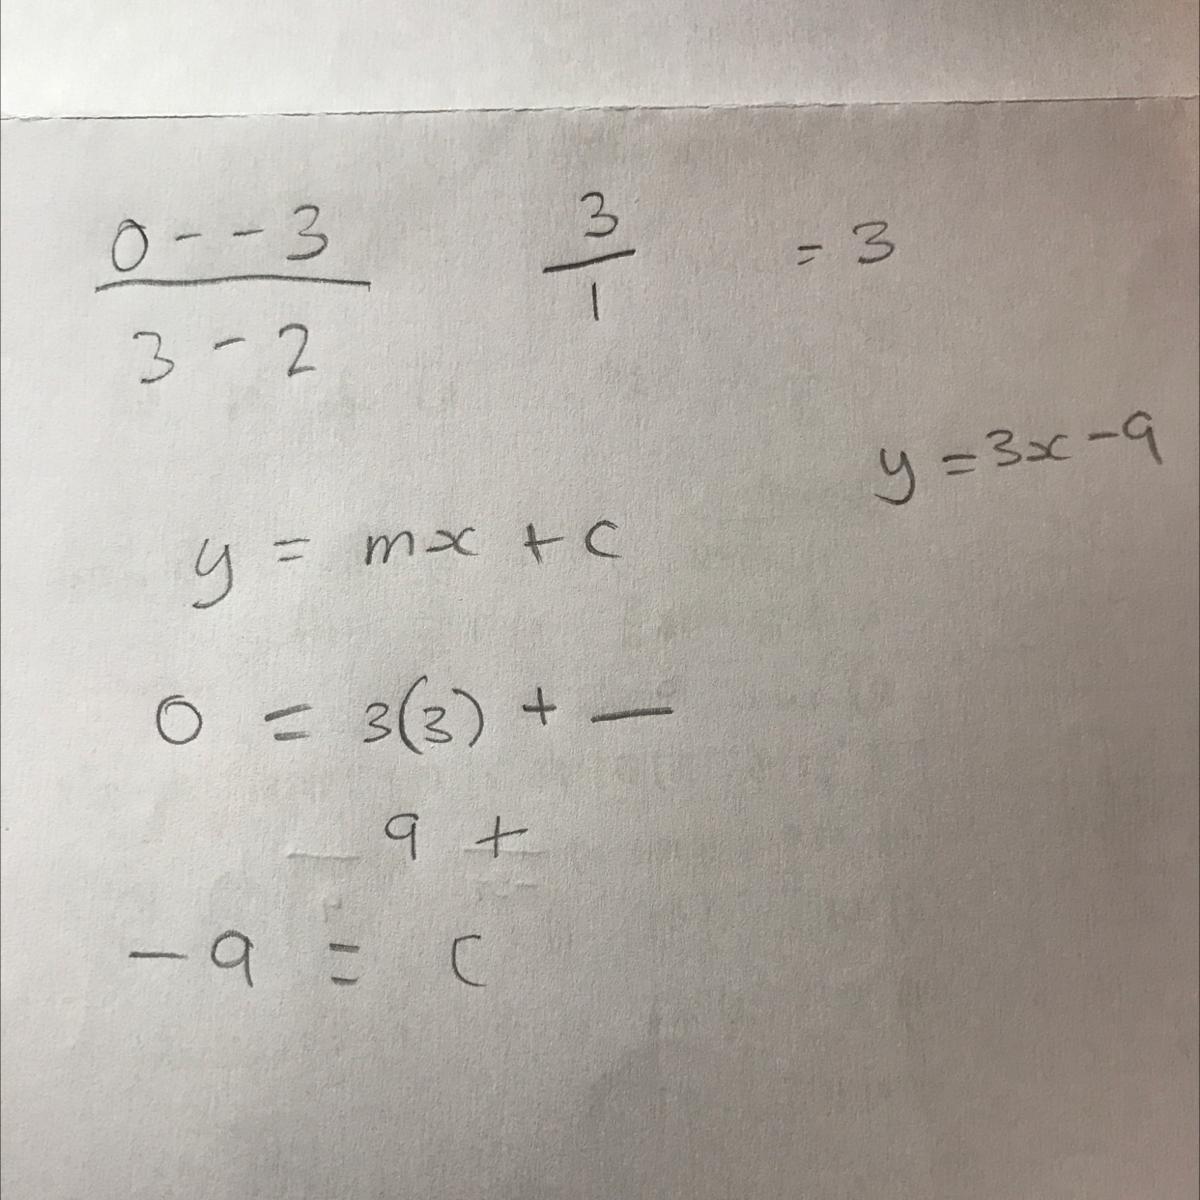 0 - - 3
3 - 2
3
1
= 3
y = 3x - 9
y = mx + c
0 = 3(3) + _
9 +
- 9 = c